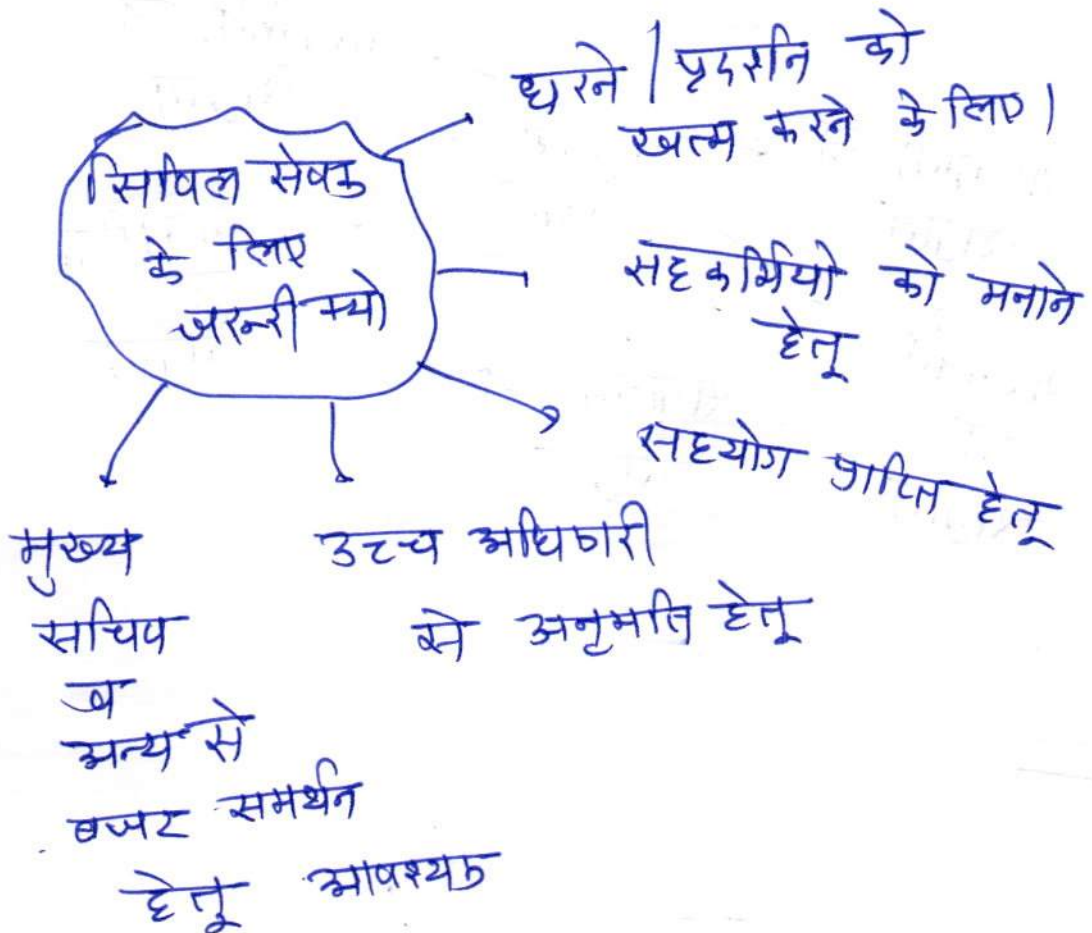 सिविल सेवक
के लिए
जरूरी क्यो
धरने / प्रदर्शन को
खत्म करने के लिए।
सहकर्मियो को मनाने
हेतू
सहयोग प्राप्ति हेतू
उच्च अधिकारी
से अनुमति हेतू
मुख्य
सचिव
व
अन्य से
बजट समर्थन
हेतू आवश्यक